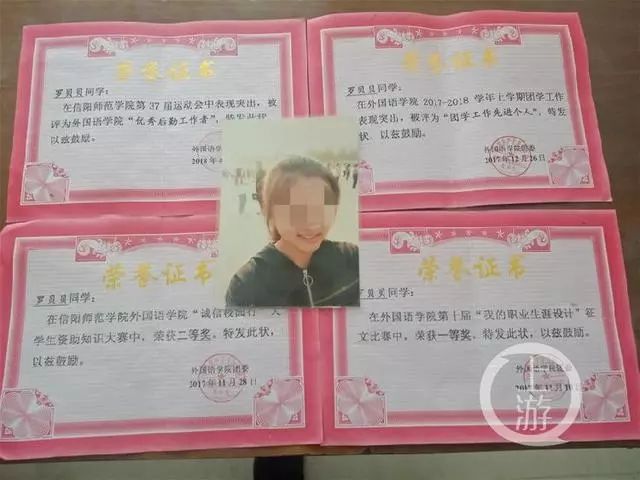 荣誉证书
罗贝贝同学：
在信阳师范学院第37届运动会中表现突出，被
评为外国语学院“优秀后勤工作者”，特发此状，
以兹鼓励。
外国语学院团委
2018年
荣誉证书
罗贝贝同学：
在外国语学院2017-2018学年上学期团学工作
表现突出，被评为“团学工作先进个人”，特发
状，以兹鼓励。
外国语学院团委
2017年12月26日
荣誉证书
罗贝贝同学：
在信阳师范学院外国语学院“诚信校园行”大
学生资助知识大赛中，荣获二等奖。特发此状，
以兹鼓励。
外国语学院团委
2017年11月28日
荣誉证书
罗贝贝同学：
在外国语学院第十届“我的职业生涯设计”征
文比赛中，荣获一等奖。特发此状，以兹鼓励。
外国语学院团委
2017年12月
游